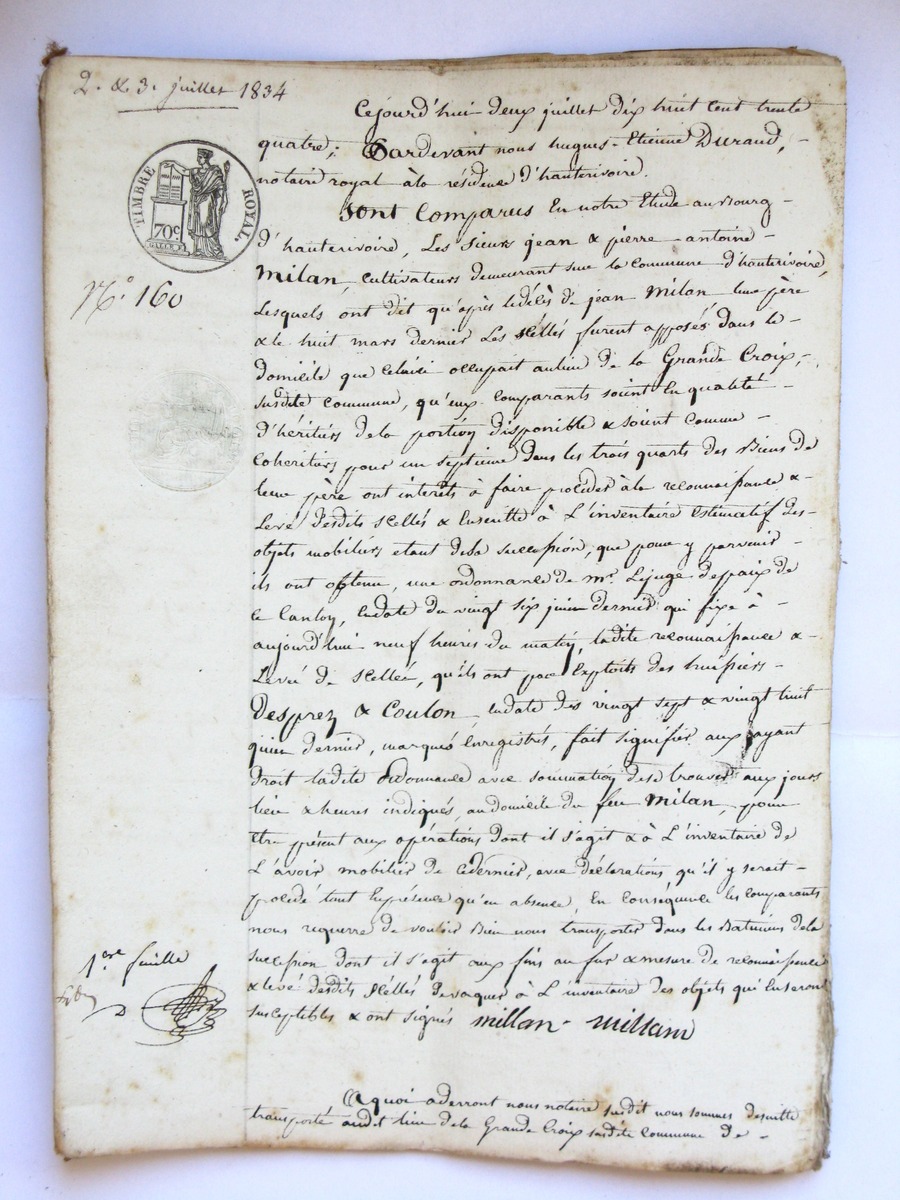 2. & 3. juillet 1834
Cejourd'hui deux juillet dix huit cent trente
quatre; Pardevant nous hugues-Etienne Duraud,
notaire royal à la résidence d'hauterivoire.
TIMBRE ROYAL.
70c
Sont Comparus En notre Etude au Bourg-
d'hauterivoire, Les sieurs jean & pierre-antoine-
Milan, cultivateurs demeurant sur la Commune d'hauterivoire,
N.º 160
Lesquels ont dit qu'après le décès de jean Milan leur père
& le huit mars dernier Les scéllés furent apposés dans le-
domicile que Celuici occupait au lieu de la Grande Croix,-
susdite commune, qu'eux comparants soient En qualité-
d'héritiers de la portion disponible & soient comme-
Coheritiers pour un septieme dans les trois quarts des Biens de
leur père ont interêts à faire procéder à la reconnaissance &-
Levé desdits scellés & Ensuitte à L'inventaire Estimatif des-
objets mobiliers etant de la succession, que pour y parvenir-
ils ont obtenu, une ordonnance de mr. Lejuge depaix de
ce Canton, Endate du vingt six juin dernier qui fixe à-
aujourd'hui neuf heures du matin, ladite reconnaissance &-
Levée de scellés, qu'ils ont par Exploits des huissiers-
Desprez & Coulon, endate des vingt sept & vingt huit
juin dernier, Enregistrés, fait signifier aux ayant
droit ladite ordonnance avec sommation de se trouver aux jours
lieu & heures indiqués, au domicile du feu Milan, pour
Etre présent aux opérations dont il s'agit & à L'inventaire de
L'avoir mobilier de cedernier, avec déclarations qu'il y serait-
procédé tant En présence qu'en absence, En conséquence les comparants
nous requerre de vouloir Bien nous transporter dans les Batimens dela
succession dont il s'agit aux fins au fur & mesure de reconnaissance
& levé desdits scéllés devaquer à L'inventaire des objets qui Enseront
susceptibles & ont signés millan - millam
1.ere feuille
D
A quoi aderront nous notaire susdit nous sommes desuitte
transporté audit lieu dela Grande Croix susdite commune de-